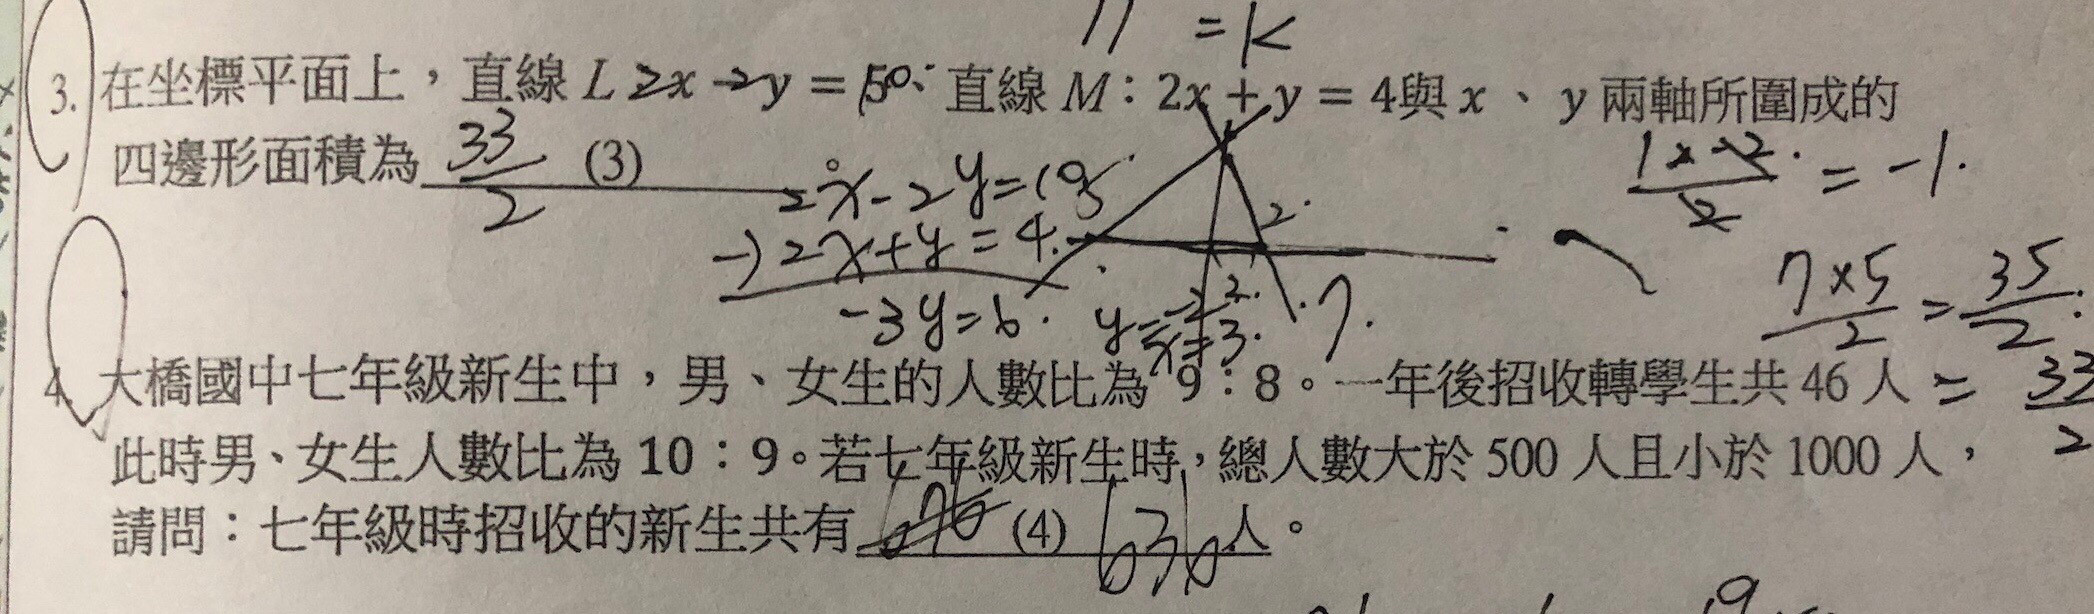 = k
3. 在坐標平面上，直線 L
直線 M：2x + y = 4與 x 、 y 兩軸所圍成的
四邊形面積為 33/2 (3)
2x - 2y = 10
-) 2x + y = 4
-3y = 6
y = -2
x = 3
2
7
1 × -2 / 2 = -1
7 × 5 / 2 = 35 / 2
= 33 / 2
4. 大橋國中七年級新生中，男、女生的人數比為 9：8。一年後招收轉學生共 46 人
此時男、女生人數比為 10：9。若七年級新生時，總人數大於 500 人且小於 1000 人，
請問：七年級時招收的新生共有 (4) 636 人。